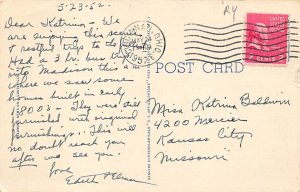 5-23-52
Dear Katrina — We
are enjoying this scenic
& restful trip to the
Had a 3 hr. bus
into Madison this
where we saw some
houses built in early
1800's. They were still
furnished with original
furnishings. This will
no doubt reach you
after we see you.
Love,
Edith & Elmer
OHIO
1952
POST CARD
UNITED STATES
POSTAGE
2 CENTS 2
Miss Katrina Baldwin
4200 Mercier
Kansas City
Missouri